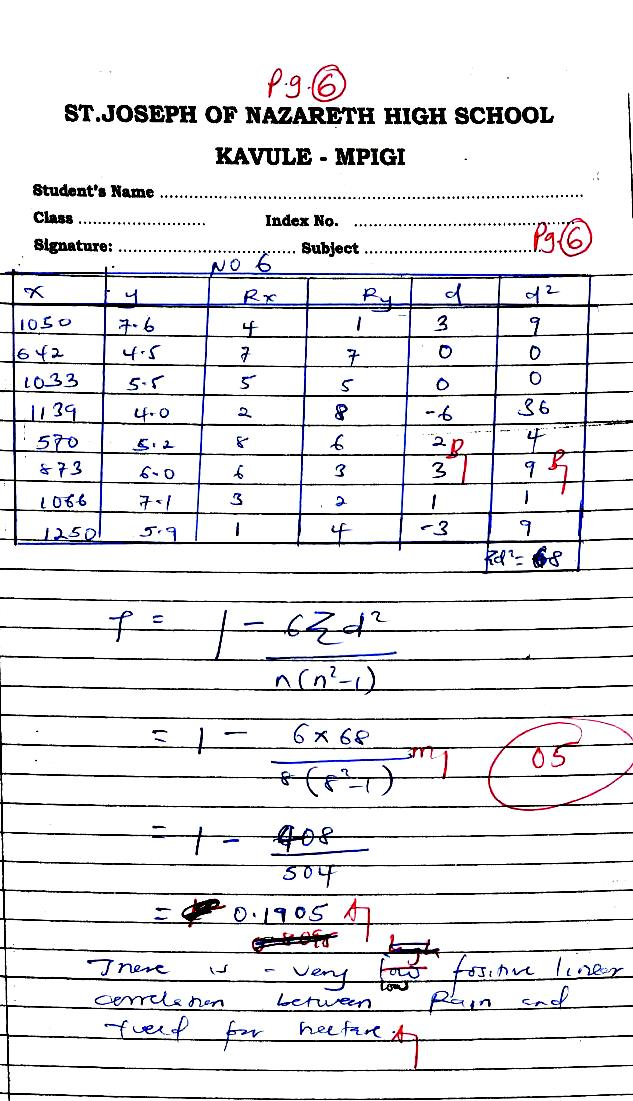 Pg. 6
ST.JOSEPH OF NAZARETH HIGH SCHOOL
KAVULE - MPIGI
Student's Name ........................
Class ........................ Index No. ........................
Signature: ........................ Subject ........................ Pg. 6
NO 6
x y Rx Ry d d²
1050 7.6 4 1 3 9
642 4.5 7 7 0 0
1033 5.5 5 5 0 0
1139 4.0 2 8 -6 36
570 5.2 8 6 2 4
873 6.0 6 3 3 B1 9 B1
1066 7.1 3 2 1 1
1250 5.9 1 4 -3 9
Σd² = 68
ρ = 1 - 6Σd² / n(n²-1)
= 1 - 6 × 68 / 8(8²-1) m1 05
= 1 - 408 / 504
= 0.1905 A1
There is a very low positive linear
correlation between Rain and
for hectare. A1